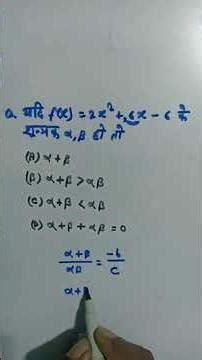 Q. यदि f(x) = 2x² + 6x - 6 के
शून्यक α, β हो तो
(A) α + β
(B) α + β > αβ
(C) α + β < αβ
(D) α + β + αβ = 0
α + β / αβ = -b / c
α +